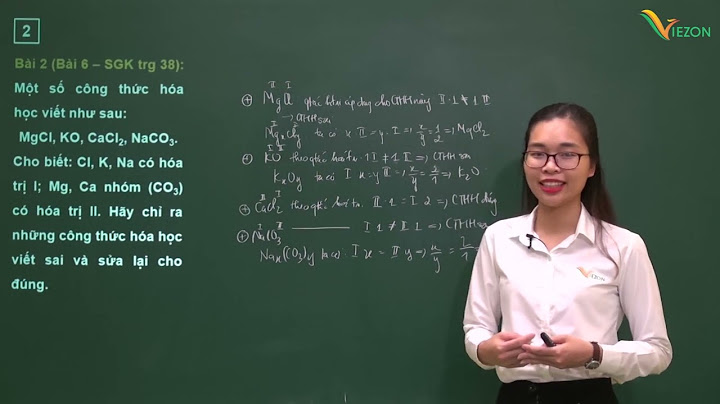 2
VIEZON
Bài 2 (Bài 6 – SGK trg 38):
Một số công thức hóa
học viết như sau:
MgCl, KO, CaCl₂, NaCO₃.
Cho biết: Cl, K, Na có hóa
trị I; Mg, Ca nhóm (CO₃)
có hóa trị II. Hãy chỉ ra
những công thức hóa học
viết sai và sửa lại cho
đúng.
II I
+ MgCl CTHH II.1 ≠ 1.I
→ CTHH sai
MgₓClᵧ ta có x.II = y.I => x/y = 1/2 => MgCl₂
I II
+ KO theo quy tắc hóa trị: 1.I ≠ 1.II => CTHH sai
KₓOᵧ ta có I.x = y.II => x/y = 2/1 => K₂O
II I
+ CaCl₂ theo quy tắc hóa trị: II.1 = I.2 => CTHH đúng
I II
+ NaCO₃ I.1 ≠ II.1 => CTHH sai
Naₓ(CO₃)ᵧ ta có: I.x = II.y => x/y = 2/1
VIEZON